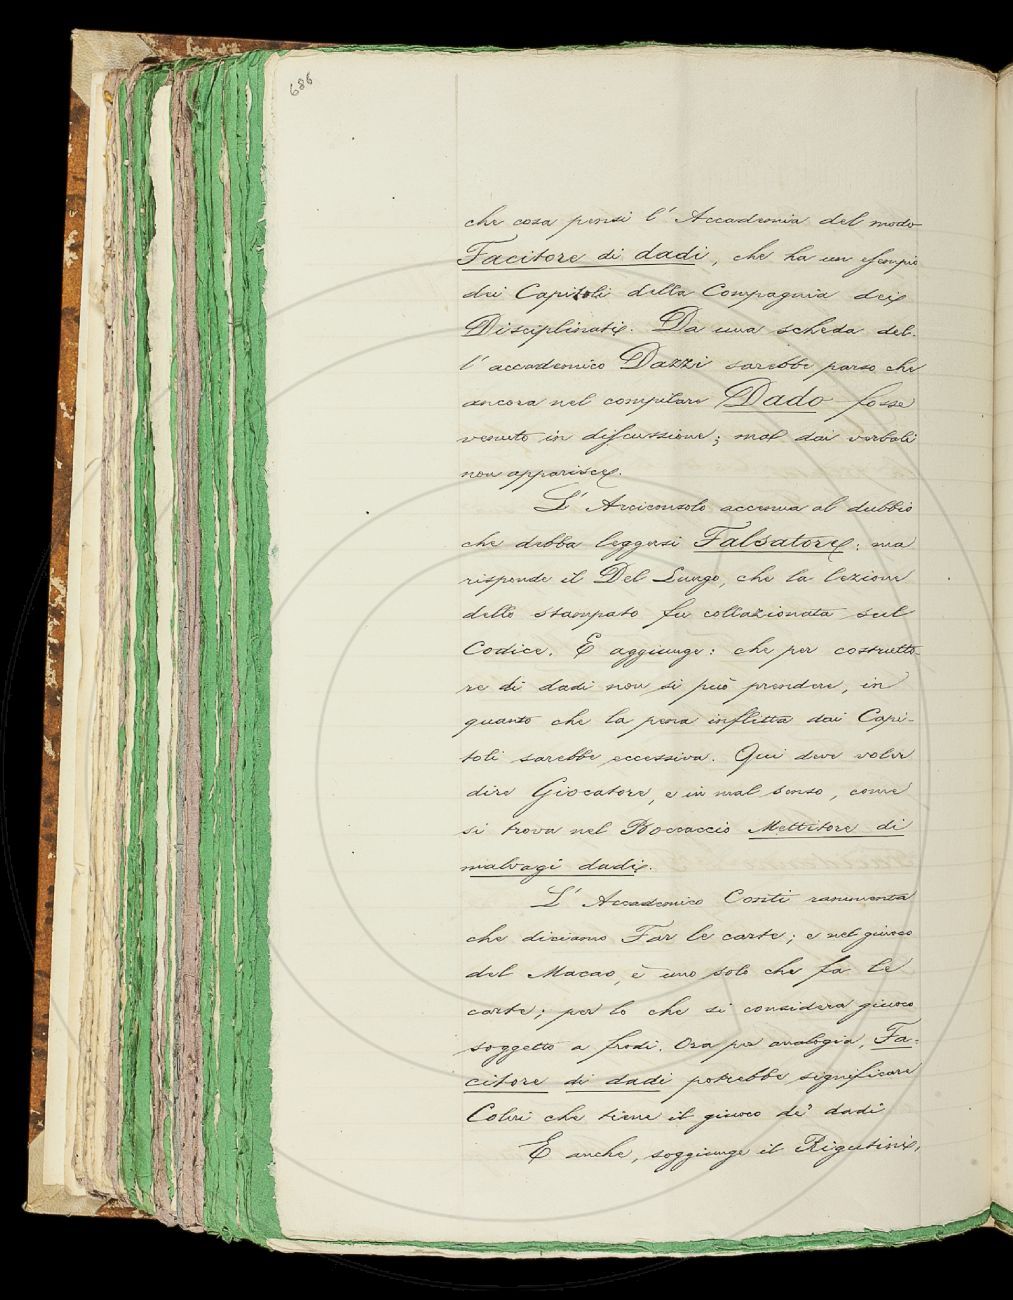 686
che cosa pensi l'Accademia del modo
Facitore di dadi, che ha un esempio
dei Capitoli della Compagnia dei
Disciplinati. Da una scheda del-
l'accademico Dazzi sarebbe parso che
ancora nel compilare Dado fosse
venuto in discussione; ma dai verbali
non apparisce.
L'Arciconsolo accenna al dubbio
che debba leggersi Falsatore: ma
risponde il Del Lungo, che la lezione
dello stampato fu collazionata sul
Codice. E aggiunge: che per costrutto
re di dadi non si può prendere, in
quanto che la pena inflitta dai Capi-
toli sarebbe eccessiva. Qui deve voler
dire Giocatore, e in mal senso, come
si trova nel Boccaccio Mettitore di
malvagi dadi.
L'Accademico Conti rammenta
che diciamo Far le carte; e nel giuoco
del Macao, è uno solo che fa le
carte; per lo che si considera giuoco
soggetto a frodi. Ora per analogia, Fa-
citore di dadi potrebbe significare
Colui che tiene il giuoco de' dadi
E anche, soggiunge il Rigutini,